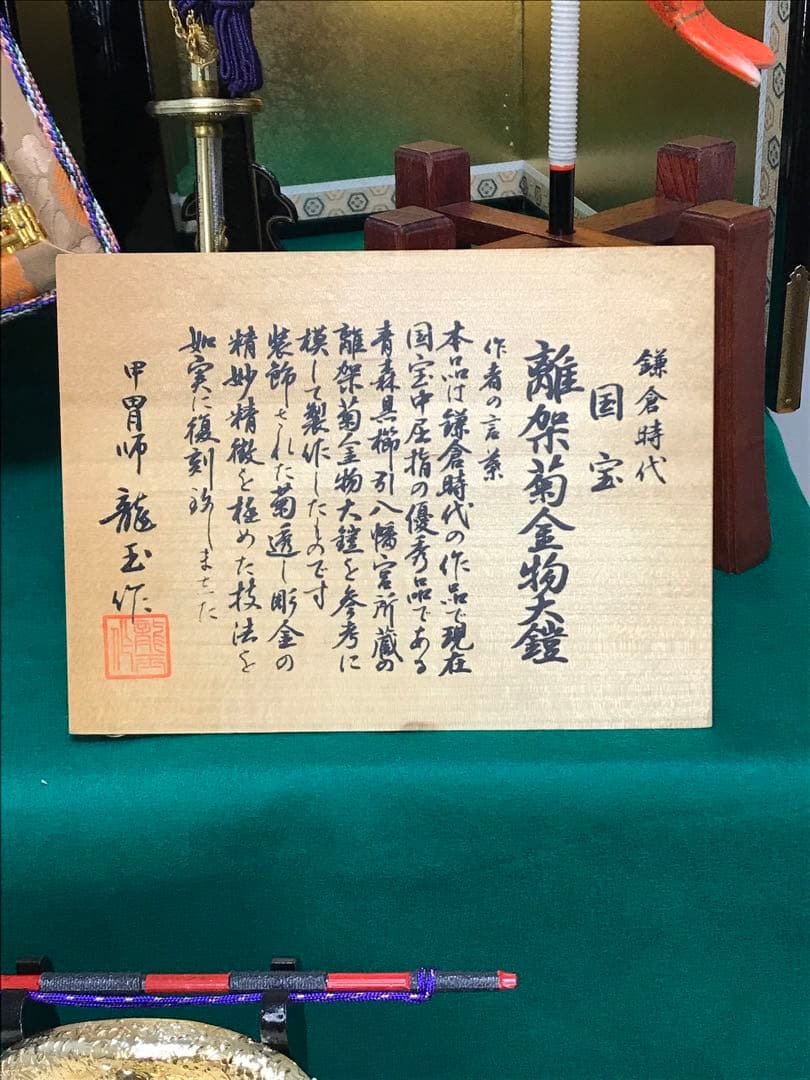 鎌倉時代
国宝
離架菊金物大鎧
作者の言葉
本品は鎌倉時代の作品で現在
国宝中屈指の優秀品である
青森県櫛引八幡宮所蔵の
離架菊金物大鎧を参考に
模して製作したものです
装飾された菊透し彫金の
精妙精微を極めた技法を
如実に復刻致しました
甲冑師 龍玉作
龍玉作